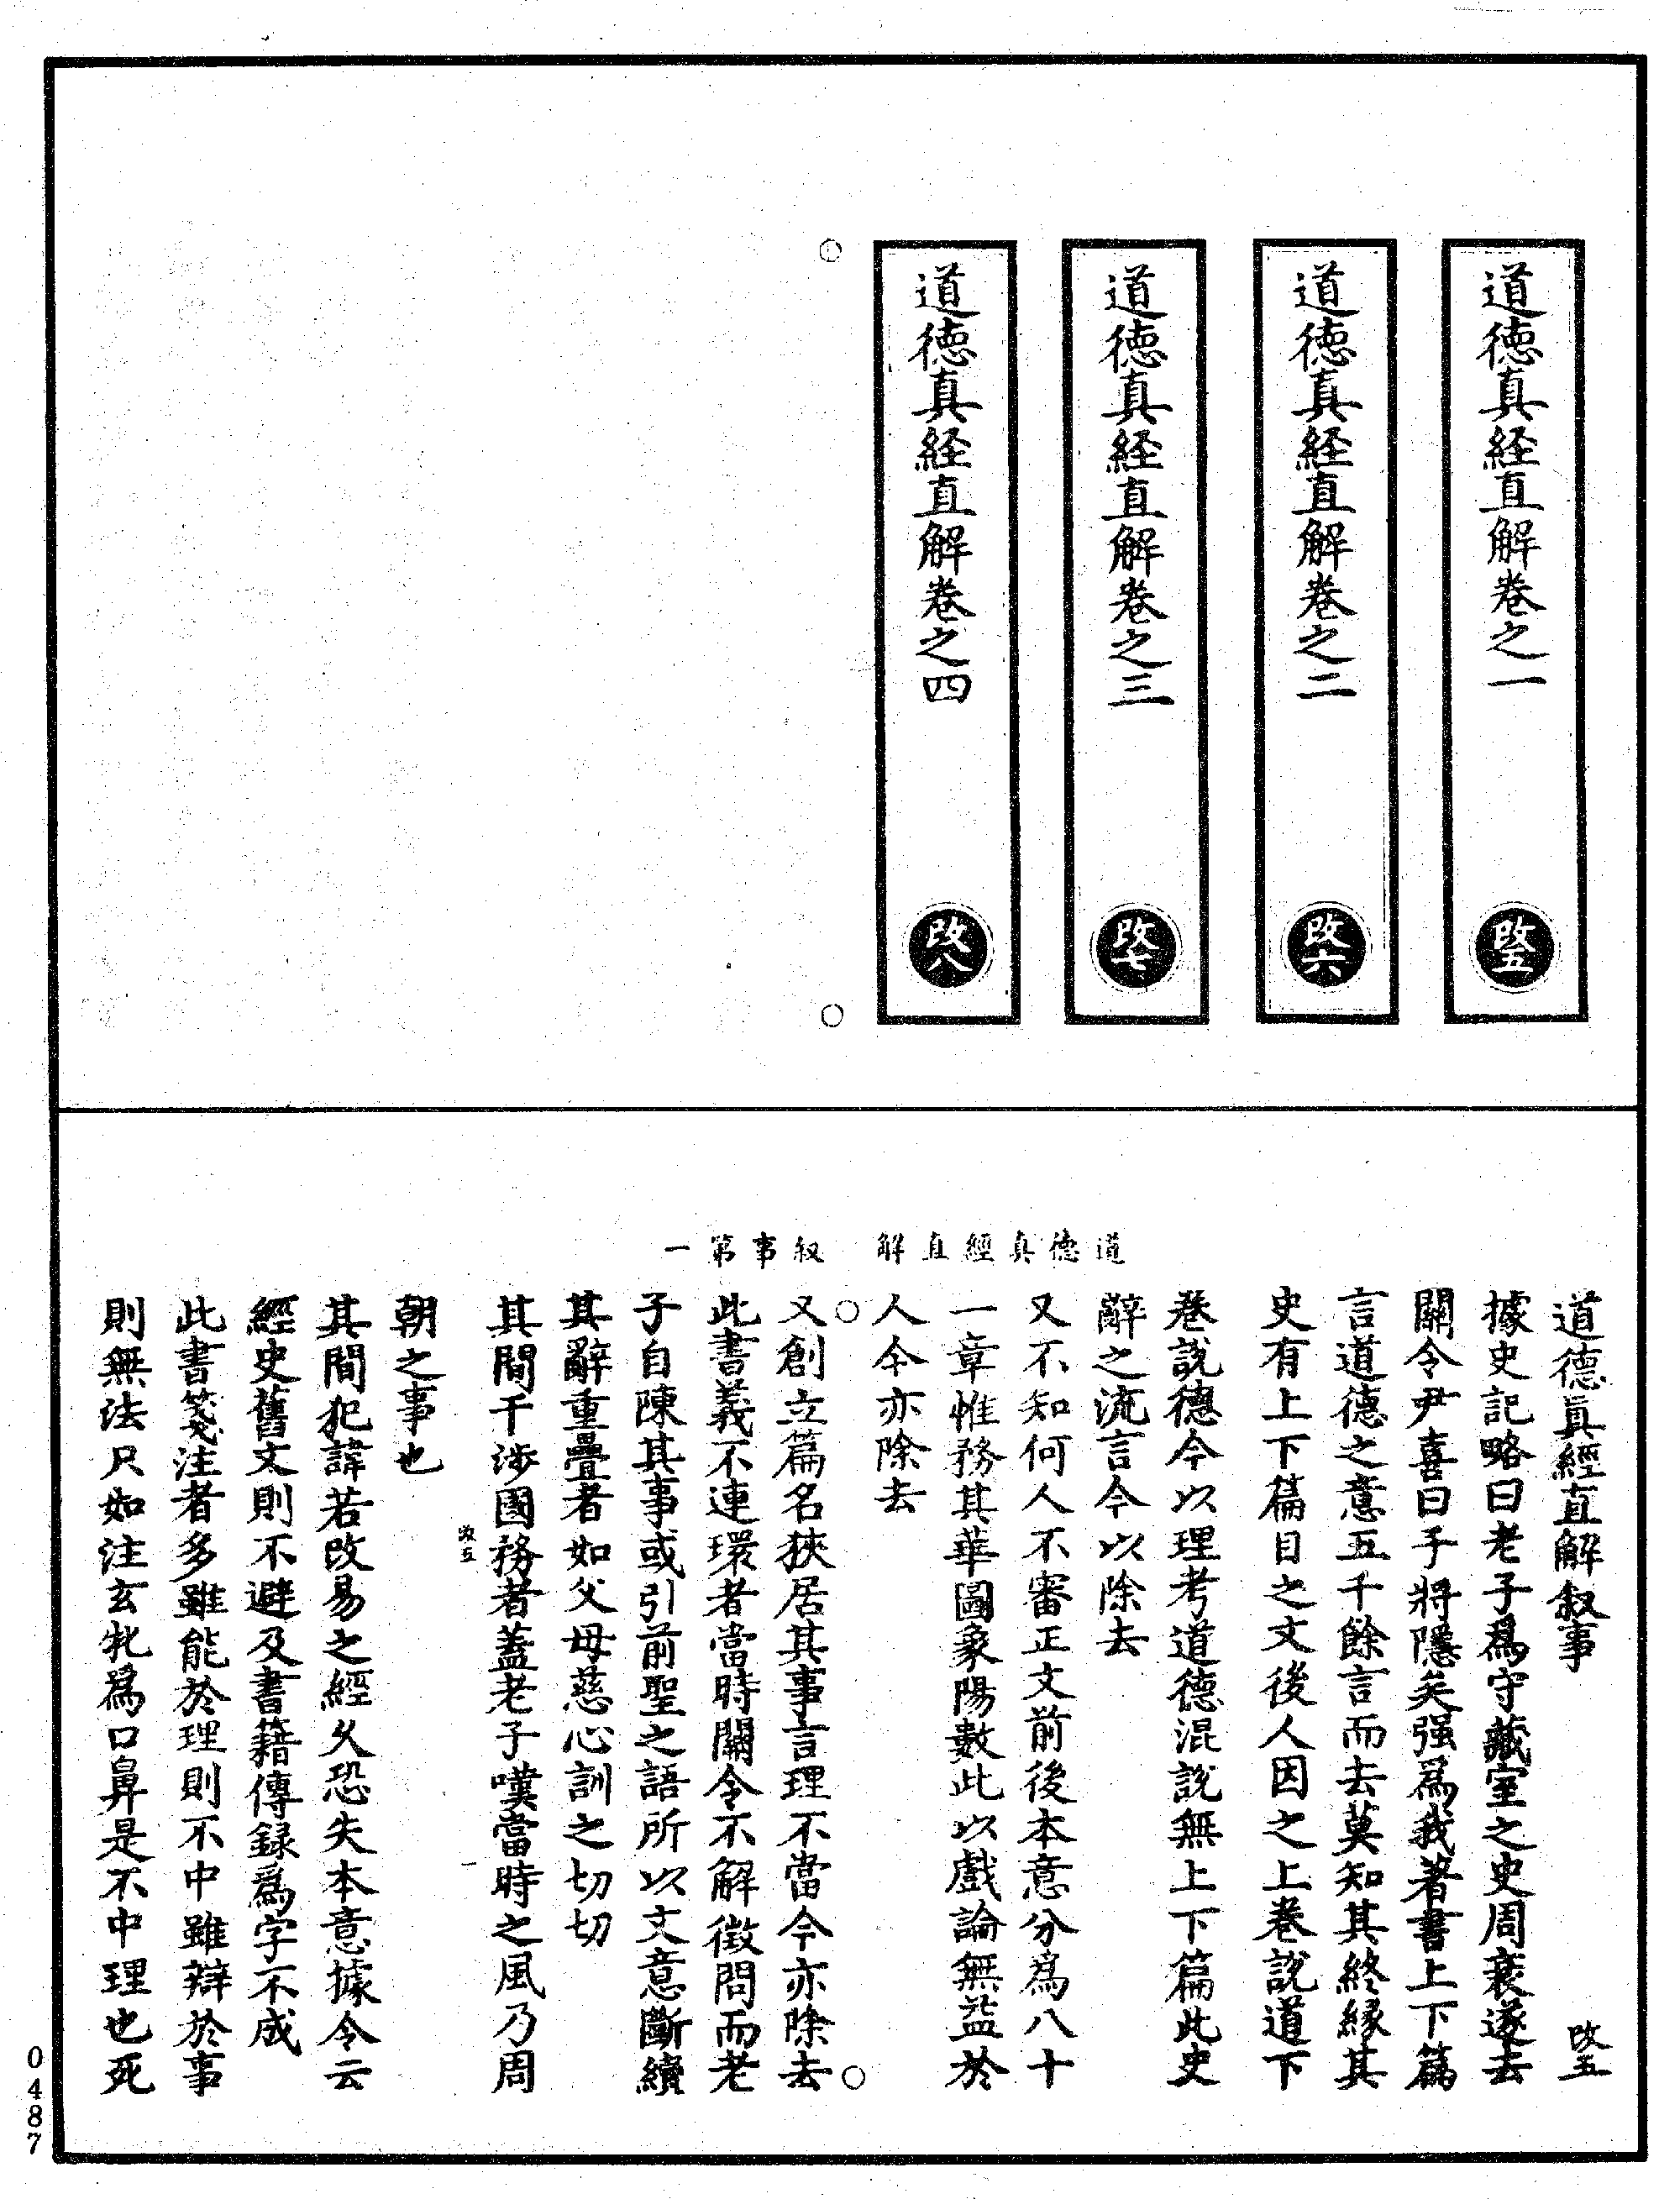 道德真経直解卷之一
改五
道德真経直解卷之二
改六
道德真経直解卷之三
改七
道德真経直解卷之四
改八
道德真經直解　叙事第一
道德眞經直解叙事　改五
據史記略曰老子爲守藏室之史周衰遂去
關令尹喜曰子將隱矣强爲我著書上下篇
言道德之意五千餘言而去莫知其終緣其
史有上下篇目之文後人因之上卷説道下
卷説德今以理考道德混説無上下篇此史
辭之流言今以除去
又不知何人不審正文前後本意分爲八十
一章惟務其華圖象陽數此以戲論無益於
人今亦除去
又創立篇名狹居其事言理不當今亦除去
此書義不連環者當時關令不解徵問而老
子自陳其事或引前聖之語所以文意斷續
其辭重疊者如父母慈心訓之切切
其間干涉國務者蓋老子嘆當時之風乃周
改五　一
朝之事也
其間犯諱若改易之經久恐失本意據令云
經史舊文則不避及書籍傳録爲字不成
此書箋注者多雖能於理則不中雖辯於事
則無法只如注玄牝爲口鼻是不中理也死
0487